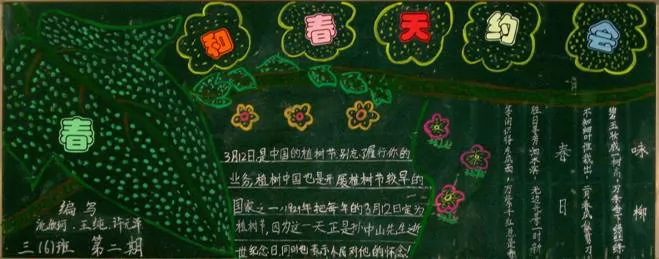 和春天约会
春
编写
三(6)班 第二期
3月12日是中国的植树节,别忘了履行你的
业务植树中国也是开展植树节较早的
国家之一1929年把每年的3月12日定为
植树节,因为这一天正是孙中山先生逝
世纪念日,同时也表示人民对他的怀念!
咏柳
碧玉妆成一树高,万条垂下绿丝绦
不知细叶谁裁出,二月春风似剪刀
春日
胜日寻芳泗水滨,无边光景一时新
等闲识得东风面,万紫千红总是春